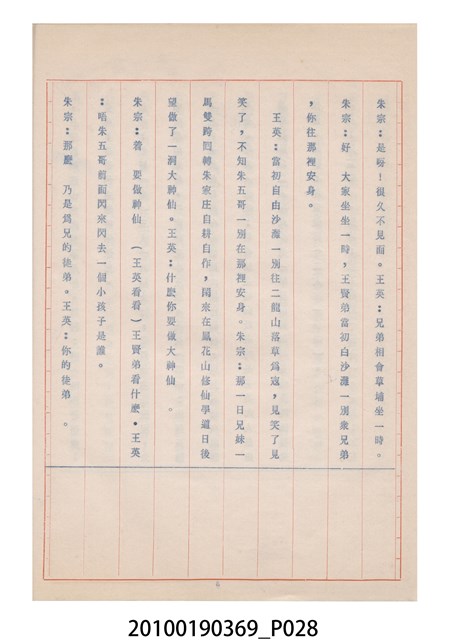 朱宗：是呀！很久不見面。王英：兄弟相會草埔坐一時。
朱宗：好　大家坐坐一時，王賢弟當初白沙灘一別衆兄弟
，你往那裡安身。
王英：當初自由沙灘一別往二龍山落草爲寇，見笑了見
笑了，不知朱五哥一別在那裡安身。朱宗：那一日兄妹一
馬雙跨回轉朱家庄自耕自作，閑來在鳳花山修仙學道日後
望做了一洞大神仙。王英：什麽你要做大神仙。
朱宗：着　要做神仙（王英看看）王賢弟看什麽。王英
：唔朱五哥前面閃來閃去一個小孩子是誰。
朱宗：那麽　乃是爲兄的徒弟。王英：你的徒弟　。
6
20100190369_P028